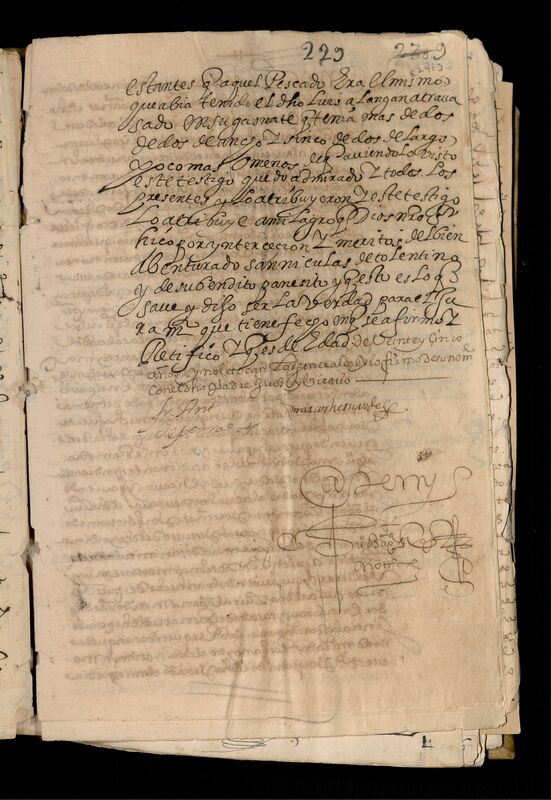 229
estantes q aquel Pescado Era el mismo
que abia tenido el dho Luis a Langan atraua
sado en su gasnate q tenia mas de dos
dedos de ancho y sinco dedos de largo
poco mas o menos de q auiendo lo visto
este testigo quedo admirado y todos los
presentes y lo atribuyeron y este testigo
lo atribuye a milagro q Dios nro sr
hiço por yntercecion y meritos del bien
abenturado san niculas de tolentino
y de su bendito panesito y q esto es lo q
saue y dijo ser la verdad para el Ju
ramto que tiene fecho en q se afirmo y
Retifico y q es de Edad de Veinte y sinco
años y no le tocan Las generales y lo firmo de su nombre
con el dho Padre Juez
fr Anto
marcos hernandez
Ante my
Notto